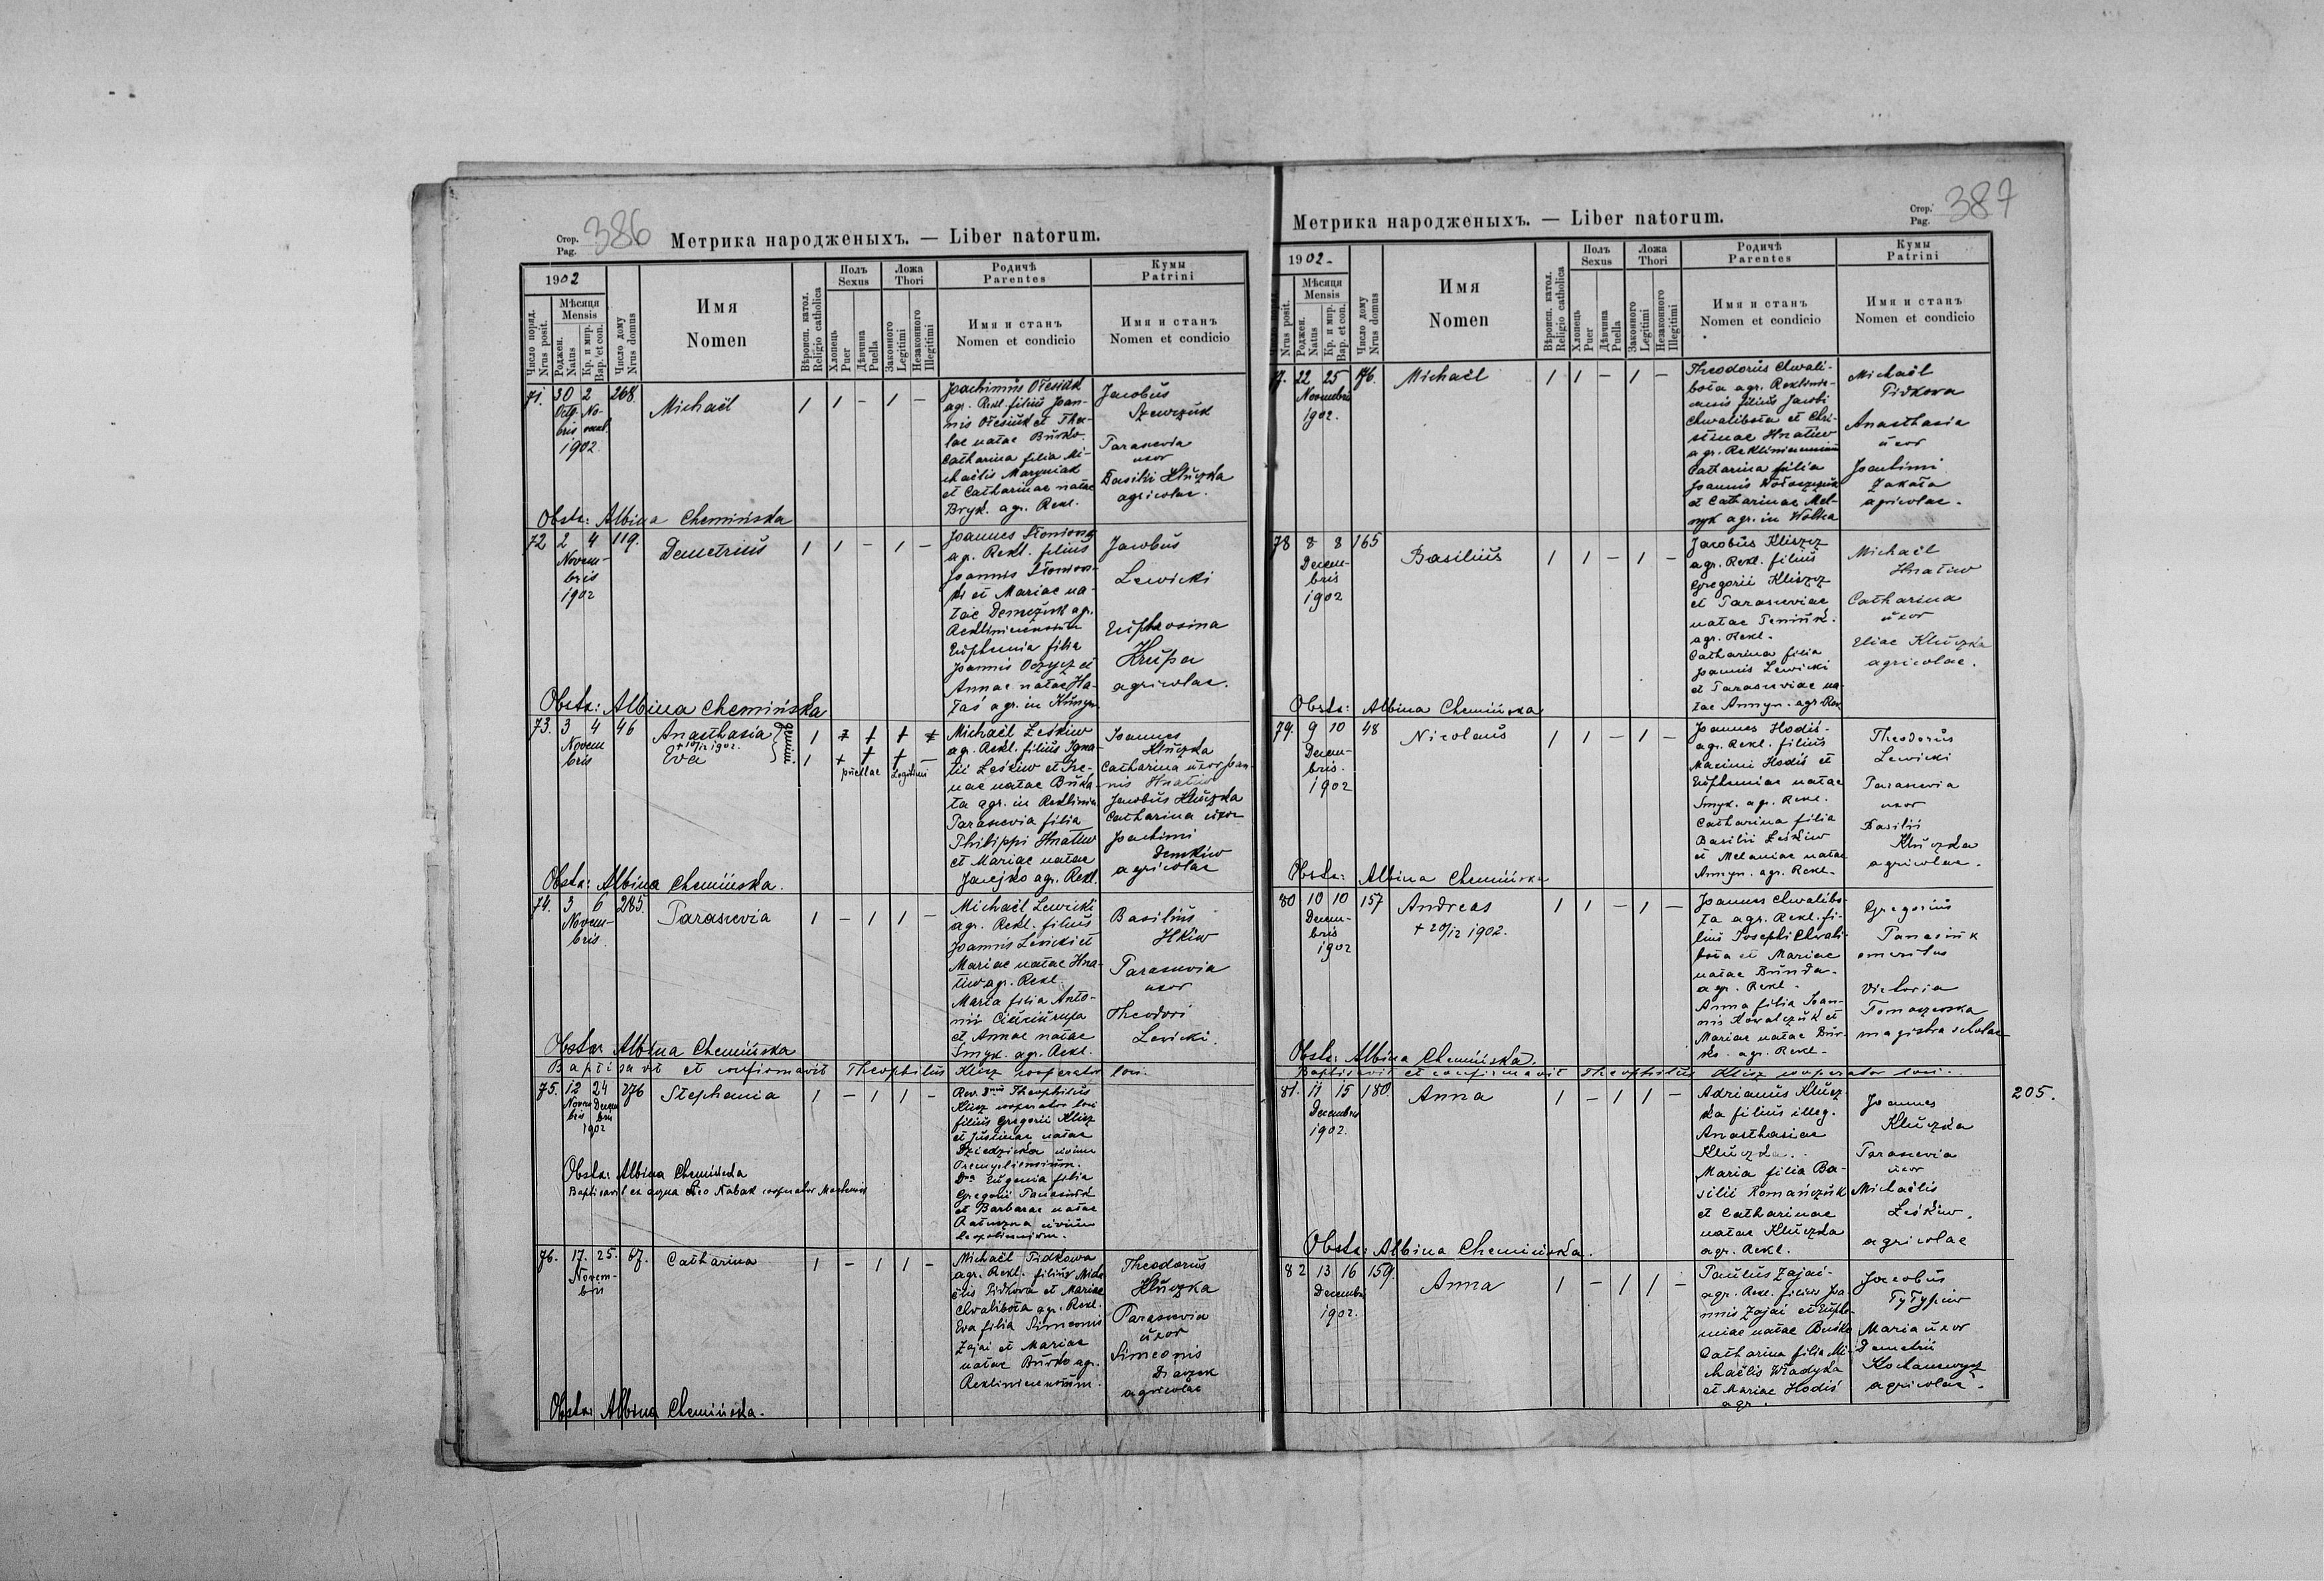 Стор.
Pag. 386
Метрика народженыхъ. — Liber natorum.
1902
Число поряд.
Nrus posit.
Мѣсяця
Mensis
Роджен.
Natus
Кр. и мир.
Bap. et con.
Число дому
Nrus domus
Имя
Nomen
Вѣроисп. катол.
Religio catholica
Полъ
Sexus
Хлопець
Puer
Дѣвчина
Puella
Ложа
Thori
Законного
Legitimi
Незаконного
Illegitimi
Родичѣ
Parentes
Имя и станъ
Nomen et condicio
Кумы
Patrini
Имя и станъ
Nomen et condicio
71. 30 2 268. Michaël 1 1 - 1 -
Octo- No-
bris vemb.
1902.
Joachimus Ołesiuk
agr. Rekl. filius Joan-
nis Ołesiuk et The-
clae natae Burko.
Catharina filia Mi-
chaëlis Maryniak
et Catharinae natae
Bryk. agr. Rekl.
Jacobus
Szewczuk
Parascevia
uxor
Basilii Kluczka
agricolae.
Obstx: Albina Chemińska
72 2 4 119. Demetrius 1 1 - 1 -
Novem-
bris
1902
ag. Rekl. filius
et Mariae na-
tae agr.
Rekliniecensium
Euphemia filia
Joannis et
Annae natae Ha-
agr. in
Jacobus
Lewicki
Euphrosina
Krupa
agricolae.
Obstx: Albina Chemińska
73. 3 4 46 Anasthasia
+ 10/12 1902.
Eva
gemini
Novem
bris
puellae Legitimi
Michaël Leśkiw
agr. Rekl. filius Igna-
tii Leśkiw et Ire-
nae natae Buka-
ta agr. in Reklinies
Parascevia filia
Philippi Hnatiw
et Mariae natae
Jarejko agr. Rekl.
Joannes
Kluczka
Catharina uxor Joan-
nis Hnatiw
Jacobus Kluczka
Catharina uxor
Joachimi
Demkiw
agricolae
Obstx: Albina Chemińska.
74. 3 6 285. Parascevia 1 - 1 1 -
Novem-
bris.
Michaël Lewicki
agr. Rekl. filius
Joannis Lewicki et
Mariae natae Hna-
tiw agr. Rekl.
Maria filia Anto-
nii
et Annae natae
Smyk. agr. Rekl.
Basilius
Ilkiw
Parascevia
uxor
Theodori
Lewicki.
Obstx: Albina Chemińska
Baptisavit et confirmavit Theophilus Klisz cooperator loci.
75. 12 24 276 Stephania 1 - 1 1 -
Novem Decem
bris bris
1902
Rev. Dnus Theophilus
Klisz cooperator loci
filius Gregorii Klisz
et Justinae natae
Dziedzicka civium
Premysliensium.
Dna Eugenia filia
Gregorii Panasiuk
et Barbarae natae
civium
Leopoliensium.
Obstx: Albina Chemińska
Baptisavit ex aqua Leo Nabak cooperator
76. 17. 25. 67. Catharina 1 - 1 1 -
Novem-
bris
Michaël Pidkowa
agr. Rekl. filius Micha
ëlis Pidkova et Mariae
Chvalibota agr. Rekl.
Eva filia Simeonis
Zajac et Mariae
natae Burko agr.
Rekliniecensium.
Theodorus
Kluczka
Parascevia
uxor
Simeonis
agricolae
Obstx: Albina Chemińska.
Метрика народженыхъ. — Liber natorum.
Стор.
Pag. 387
1902-
Nrus posit.
Мѣсяця
Mensis
Роджен.
Natus
Кр. и мир.
Bap. et con.
Число дому
Nrus domus
Имя
Nomen
Вѣроисп. катол.
Religio catholica
Полъ
Sexus
Хлопець
Puer
Дѣвчина
Puella
Ложа
Thori
Законного
Legitimi
Незаконного
Illegitimi
Родичѣ
Parentes
Имя и станъ
Nomen et condicio
Кумы
Patrini
Имя и станъ
Nomen et condicio
77. 22 25 176. Michaël 1 1 - 1 -
Novembris
1902.
Theodorus Chwali-
bota agr. Reklinie-
censis filius Jacobi
Chwalibota et Chri-
stinae Hnatiw
agr. Rekliniecensium
Catharina filia
Joannis Wołoszczuk
et Catharinae Mel-
nyk agr. in Wolka
Michaël
Pidkova
Anasthasia
uxor
Joachimi
Zakała
agricolae.
78 8 8 165 Basilius 1 1 - 1 -
Decem-
bris
1902
Jacobus Kliszcz
agr. Rekl. filius
Gregorii Kliszcz
et Parasceviae
natae
agr. Rekl.
Catharina filia
Joannis Lewicki
et Parasceviae na-
tae agr. Rekl.
Michaël
Hnatiw
Catharina
uxor
Eliae Kluczka
agricolae.
Obstx: Albina Chemińska
79. 9 10 48 Nicolaus 1 1 - 1 -
Decem-
bris.
1902
Joannes Hodiś.
agr. Rekl. filius
Maximi Hodiś et
Euphemiae natae
Smyk. agr. Rekl.
Catharina filia
Basilii Leśkiw
et Melaniae natae
agr. Rekl.
Theodorus
Lewicki
Parascevia
uxor
Basilii
Kluczka
agricolae.
Obstx: Albina Chemińska
80 10 10 157 Andreas 1 1 - 1 -
+ 20/12 1902.
Decem-
bris
1902
Joannes Chwalibo-
ta agr. Rekl. fi-
lius Josephi Chwali-
bota et Mariae
natae Bunda.
agr. Rekl.
Anna filia Joan-
nis Kowalczuk et
Mariae natae Bur-
ko. agr. Rekl.
Gregorius
Panasiuk
emeritus
Victoria
Tomaszewska
magistra scholae
Obstx: Albina Chemińska.
Baptisavit et confirmavit Theophilus Klisz cooperator loci.
81. 11 15 180. Anna 1 - 1 1 -
Decembris
1902.
Adrianus Klucz
ka filius illeg.
Anasthasiae
Kluczka.
Maria filia Ba-
silii Romańczuk
et Catharinae
natae Kluczka
agr. Rekl.
Joannes
Kluczka
Parascevia
uxor
Michaëlis
Leśkiw.
agricolae
205.
Obstx: Albina Chemińska.
82 13 16 159. Anna 1 - 1 1 -
Decembris
1902.
Paulus Zajac
agr. Rekl. filius Joa
nnis Zajac et Euphe-
miae natae Burko
Catharina filia Mi-
chaëlis Władyka
et Mariae Hodiś
agr.
Jacobus
Maria uxor
Demetrii
agricolae.